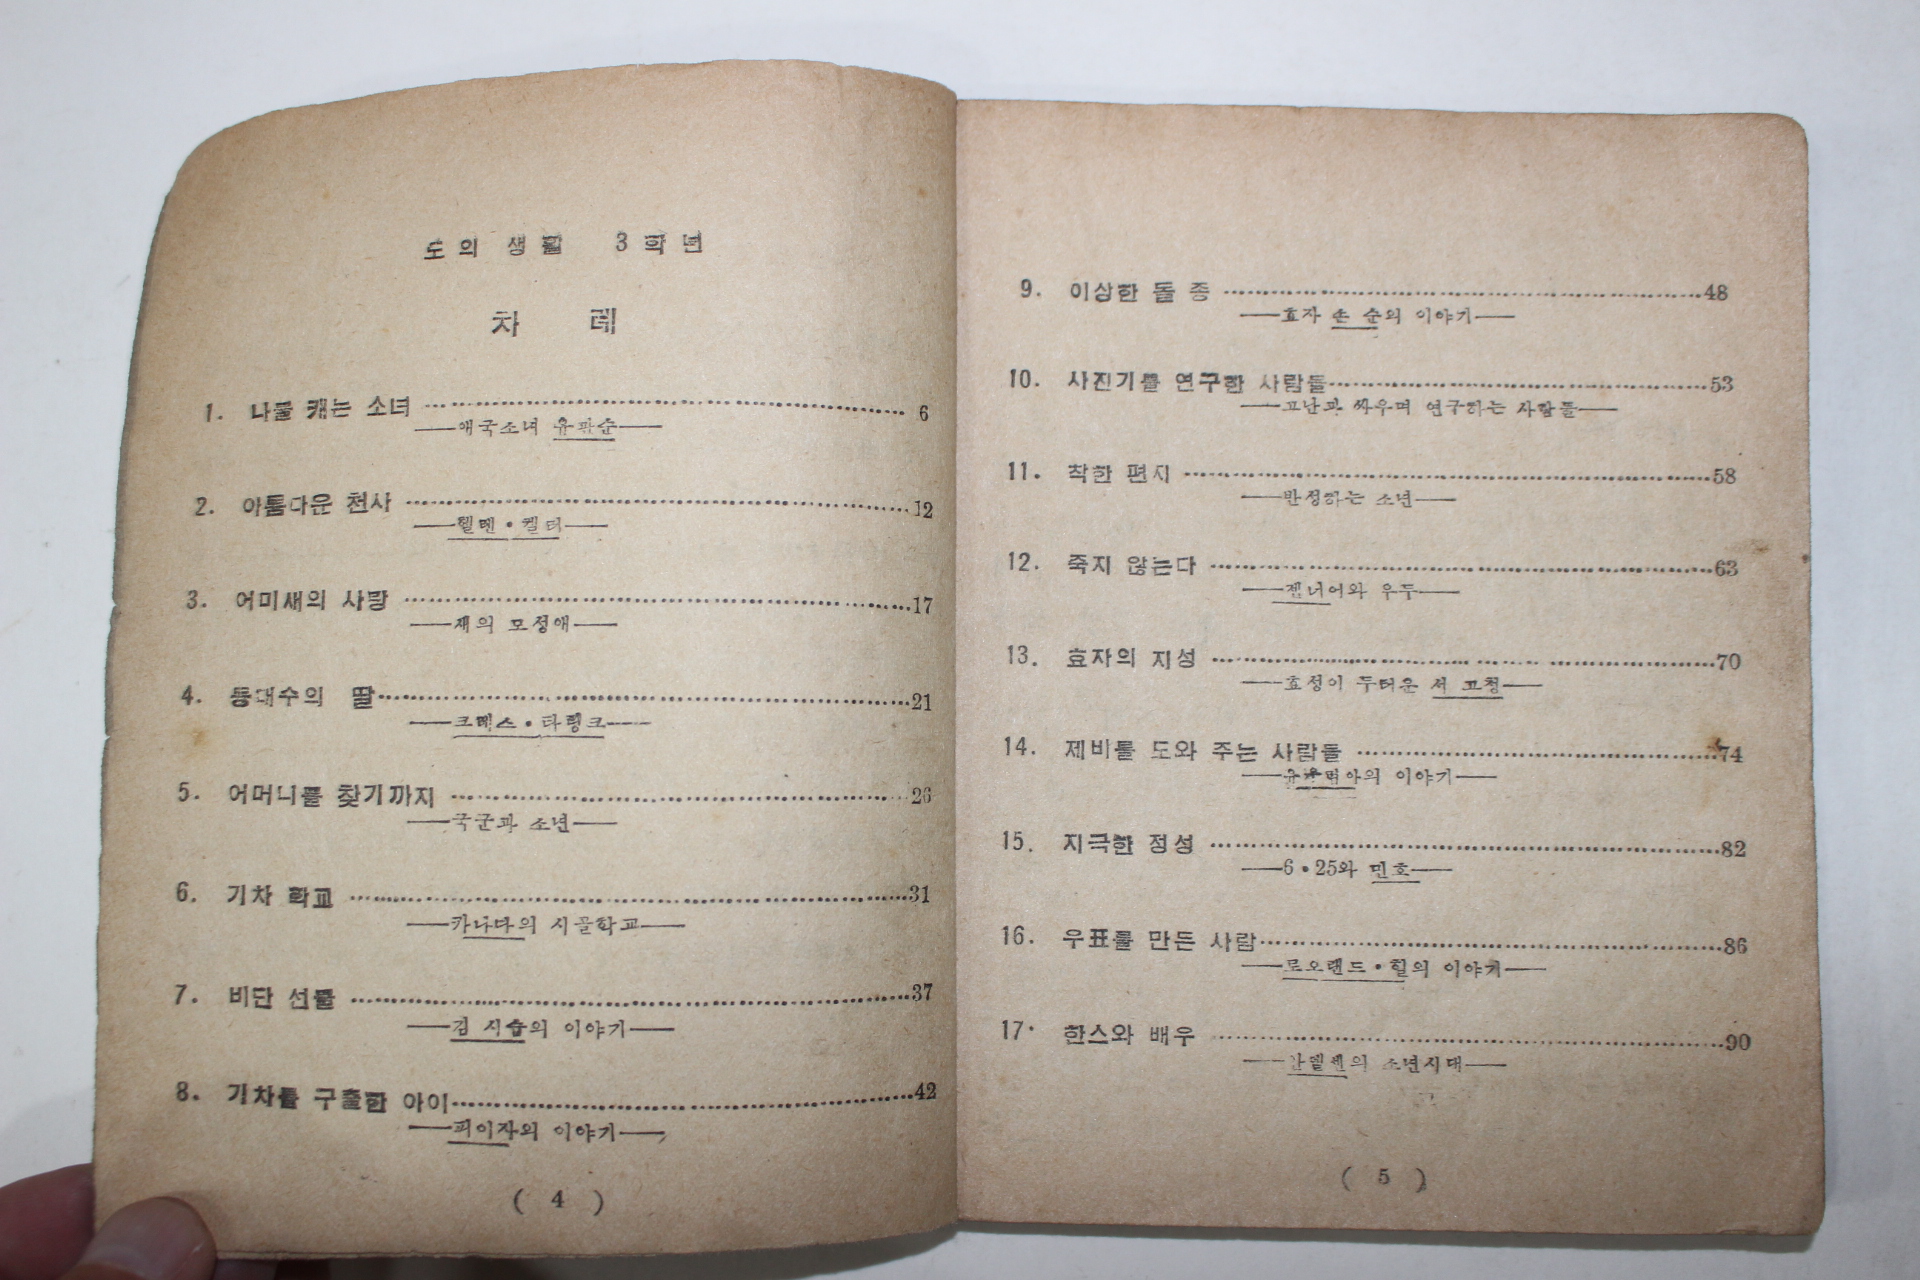 도의 생활 3학년
차 례
1. 나물 캐는 소녀 ………… 6
——애국소녀 유관순——
2. 아름다운 천사 ………… 12
——헬렌・켈러——
3. 어미새의 사랑 ………… 17
——새의 모성애——
4. 등대수의 딸 ………… 21
——크레스・타링크——
5. 어머니를 찾기까지 ………… 26
——국군과 소년——
6. 기차 학교 ………… 31
——카나다의 시골학교——
7. 비단 선물 ………… 37
——김 시습의 이야기——
8. 기차를 구출한 아이 ………… 42
——피이자의 이야기——
( 4 )
9. 이상한 돌 종 ………… 48
——효자 손 순의 이야기——
10. 사진기를 연구한 사람들 ………… 53
——고난과 싸우며 연구하는 사람들——
11. 착한 편지 ………… 58
——반성하는 소년——
12. 죽지 않는다 ………… 63
——젠너어와 우두——
13. 효자의 지성 ………… 70
——효성이 두터운 서 고청——
14. 제비를 도와 주는 사람들 ………… 74
이야기——
15. 지극한 정성 ………… 82
——6・25와 민호——
16. 우표를 만든 사람 ………… 86
——로오랜드・힐의 이야기——
17. 한스와 배우 ………… 90
——안델센의 소년시대——
( 5 )